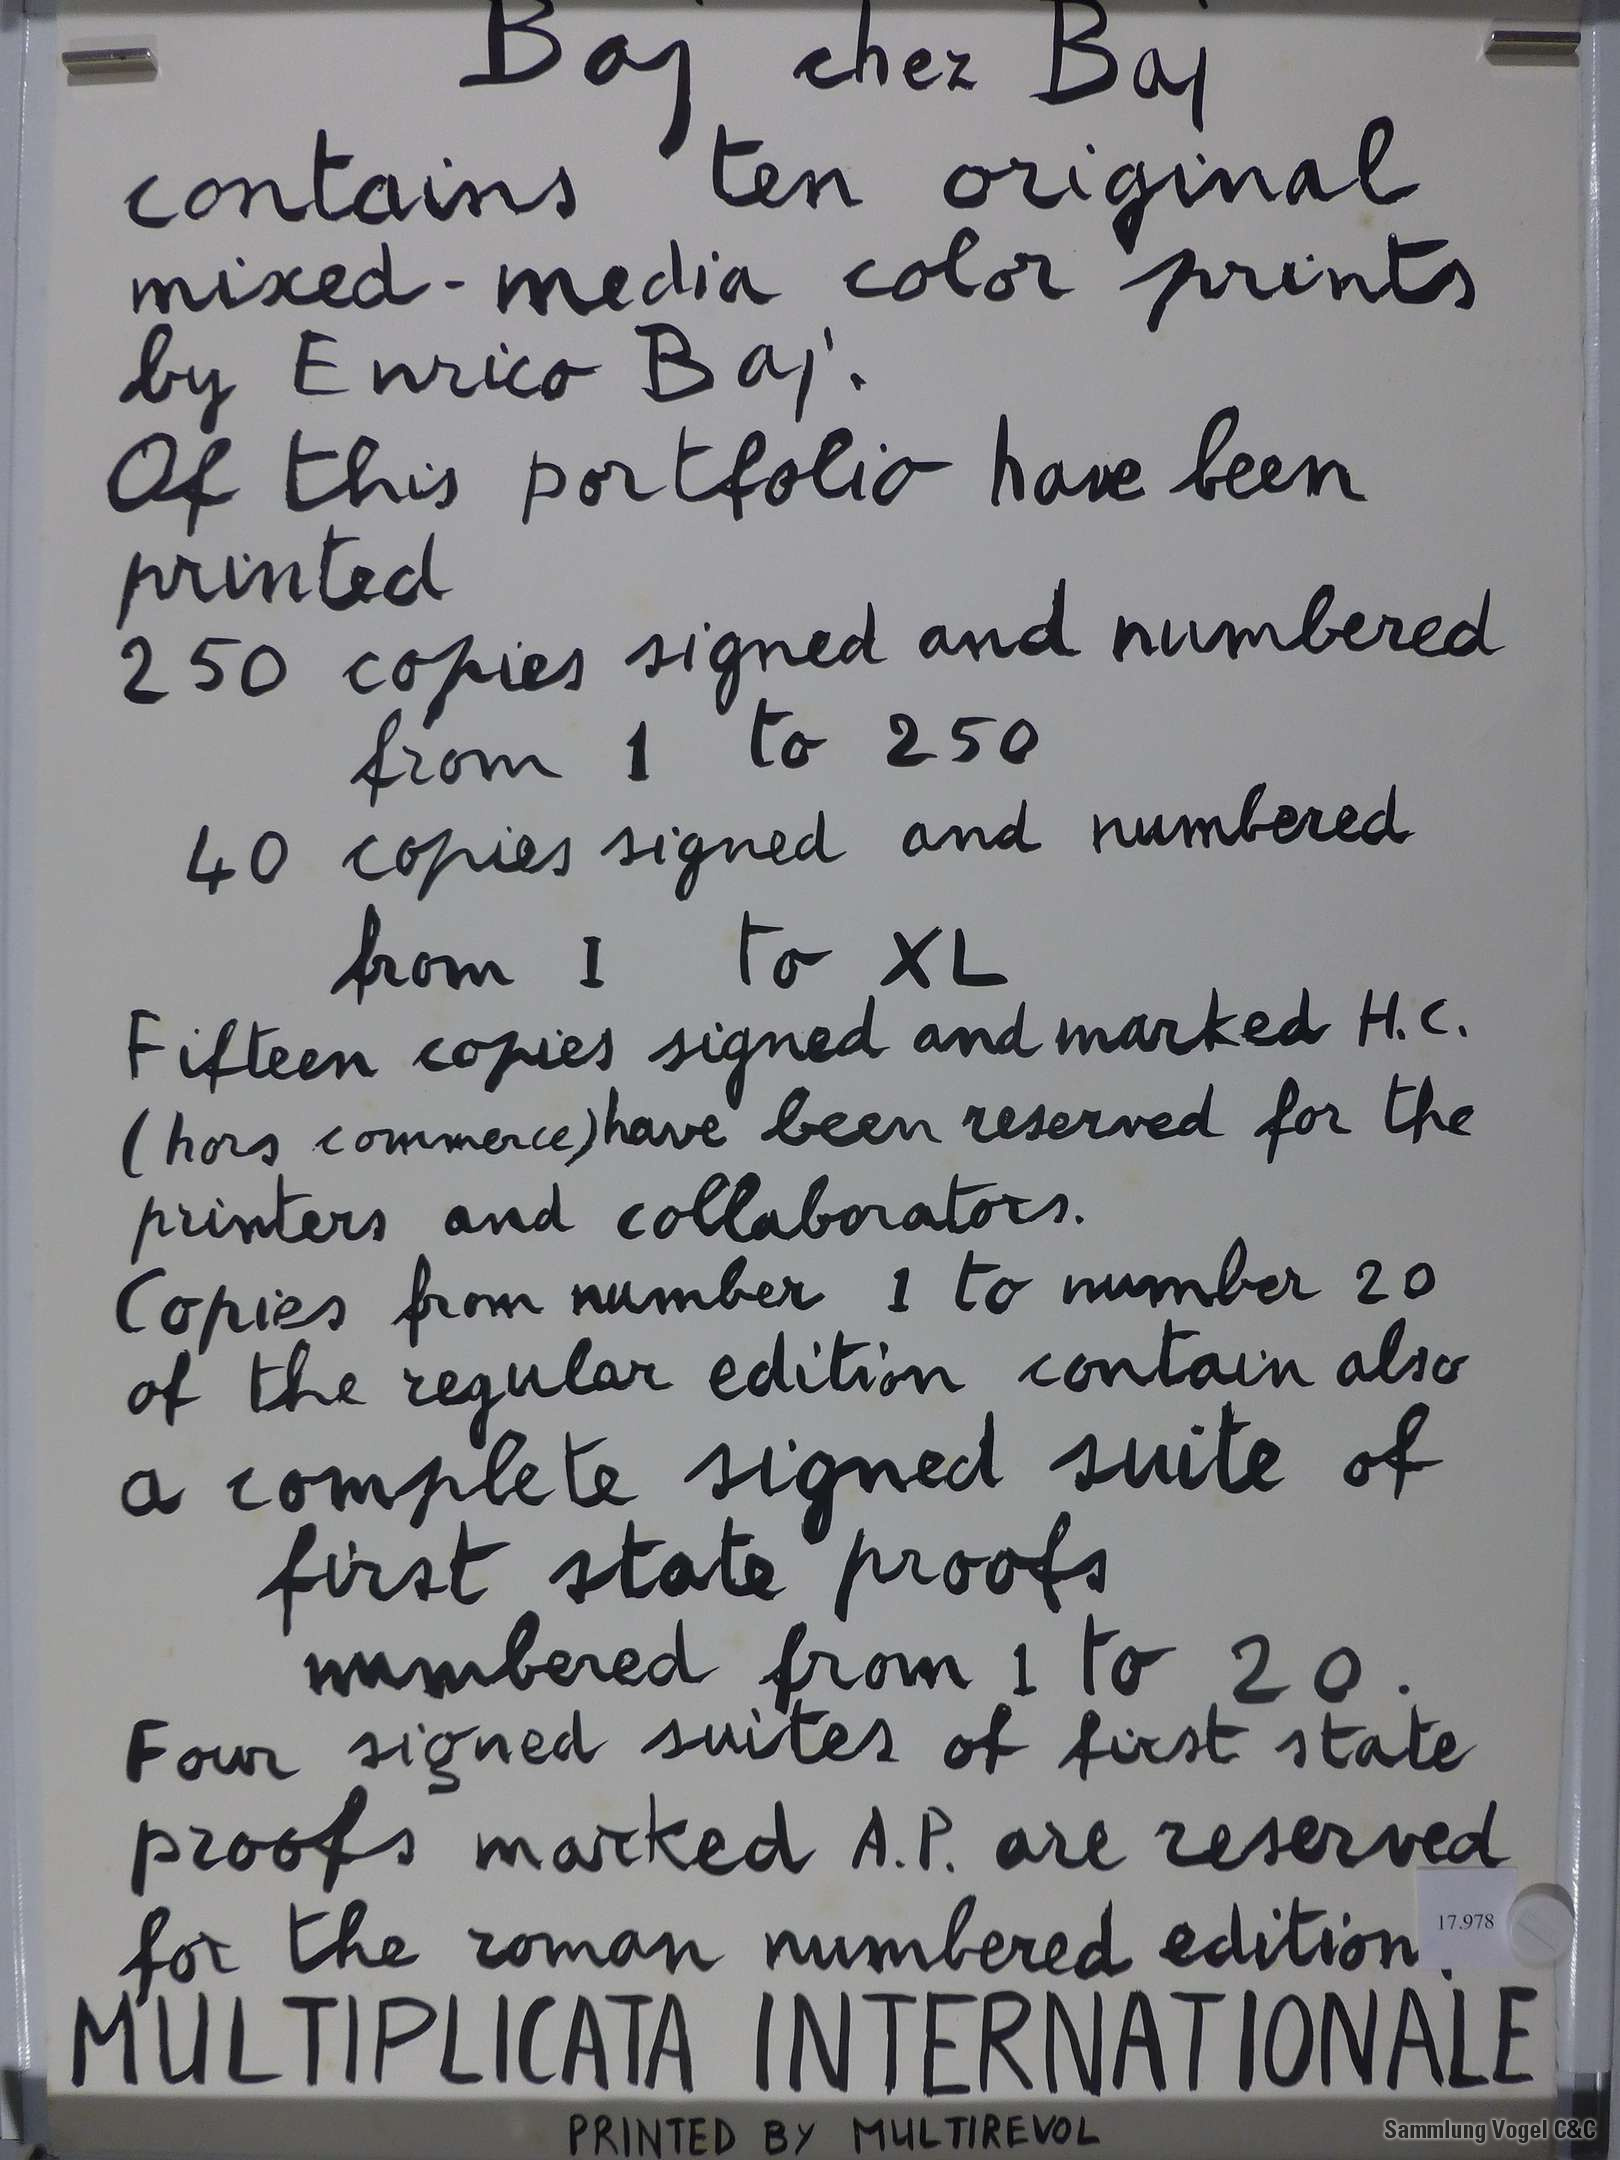 Baj chez Baj
contains ten original
mixed-media color prints
by Enrico Baj.
Of this portfolio have been
printed
250 copies signed and numbered
from 1 to 250
40 copies signed and numbered
from I to XL
Fifteen copies signed and marked H.C.
(hors commerce) have been reserved for the
printers and collaborators.
Copies from number 1 to number 20
of the regular edition contain also
a complete signed suite of
first state proofs
numbered from 1 to 20.
Four signed suites of first state
proofs marked A.P. are reserved
for the roman numbered edition.
17.978
MULTIPLICATA INTERNATIONALE
PRINTED BY MULTIREVOL
Sammlung Vogel C&C